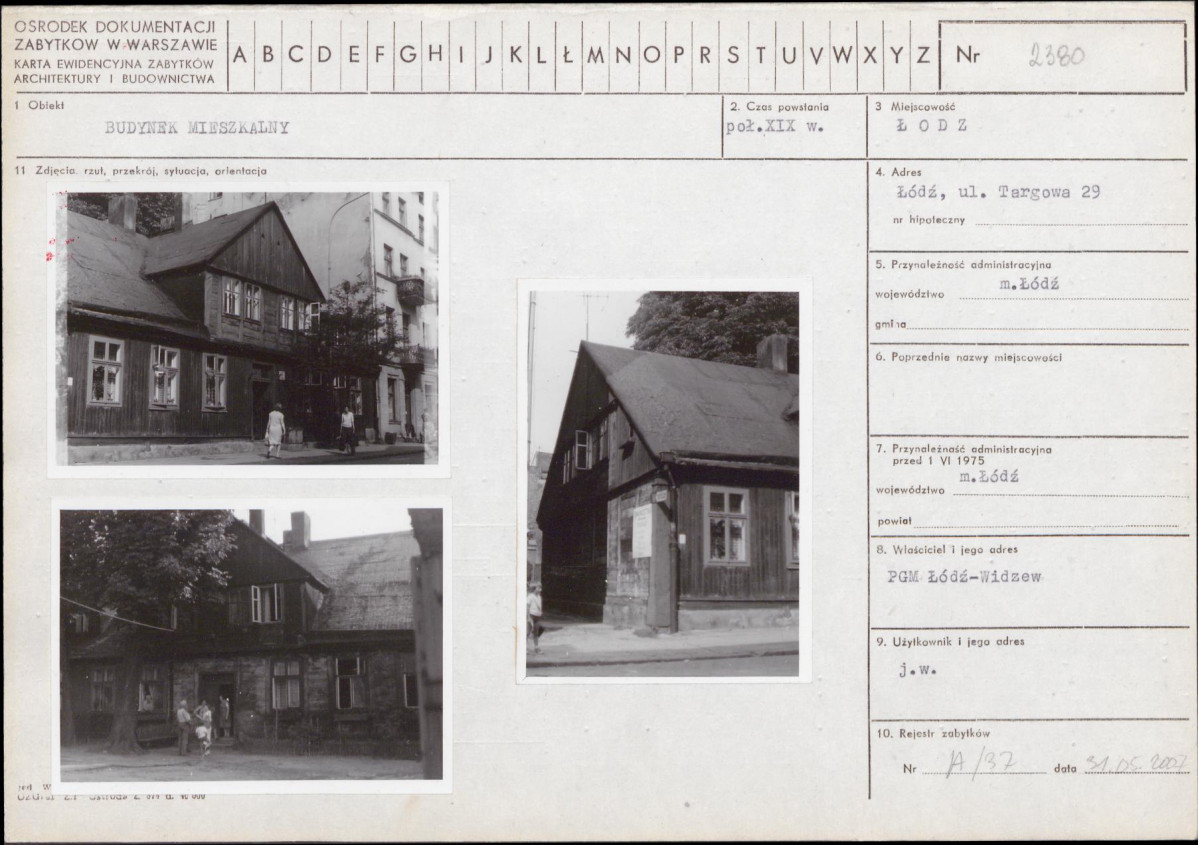 OŚRODEK DOKUMENTACJI
ZABYTKÓW W WARSZAWIE
KARTA EWIDENCYJNA ZABYTKÓW
ARCHITEKTURY I BUDOWNICTWA
A B C D E F G H I J K L Ł M N O P R S T U V W X Y Z
Nr 2380
1 Obiekt
BUDYNEK MIESZKALNY
2. Czas powstania
poł.XIX w.
3 Miejscowość
Ł O D Z
11 Zdjęcia, rzut, przekrój, sytuacja, orientacja
4. Adres
Łódź, ul. Targowa 29
nr hipoteczny
5. Przynależność administracyjna
województwo m.Łódź
gmina
6. Poprzednie nazwy miejscowości
7. Przynależność administracyjna
przed 1 VI 1975
województwo m.Łódź
powiat
8. Właściciel i jego adres
PGM Łódź-Widzew
9. Użytkownik i jego adres
j.w.
10. Rejestr zabytków
Nr A/37 data 31.05.2007